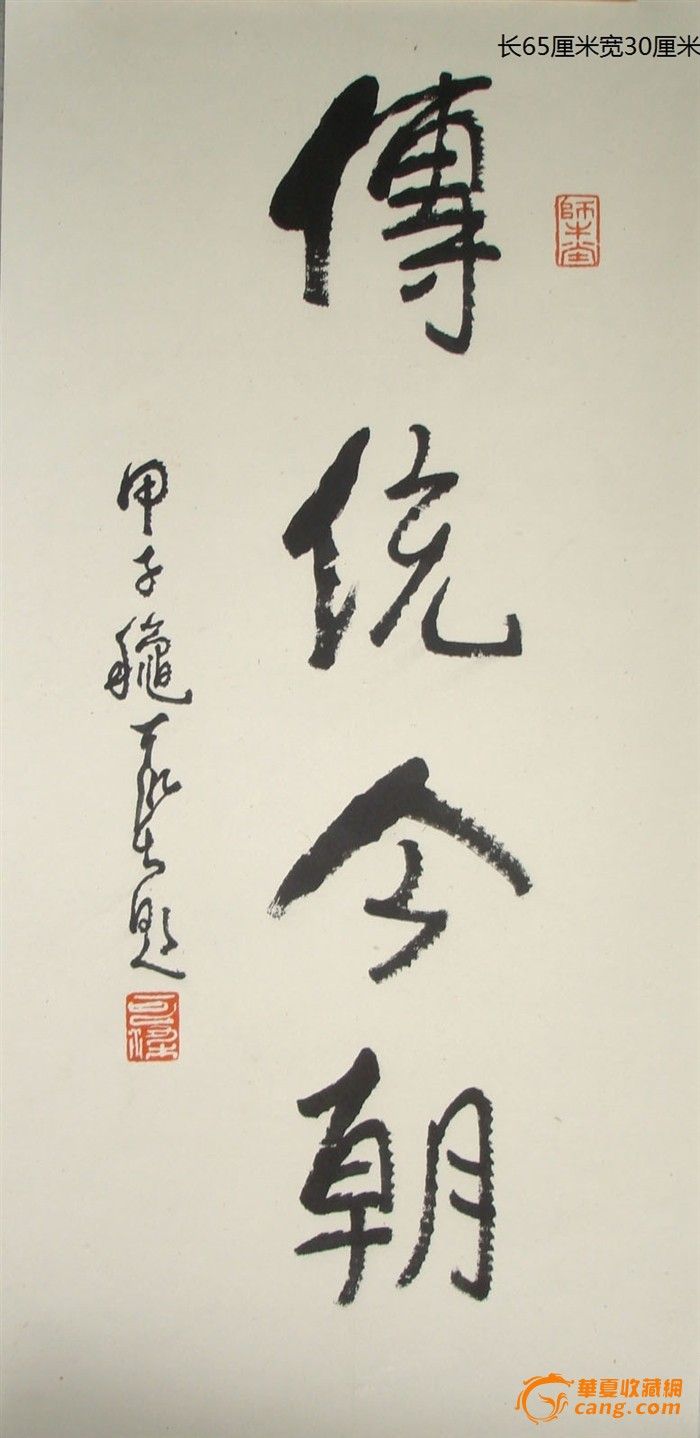 长65厘米宽30厘米
師牛堂
傳統今朝
甲子龝可染題
華夏收藏網
cang.com